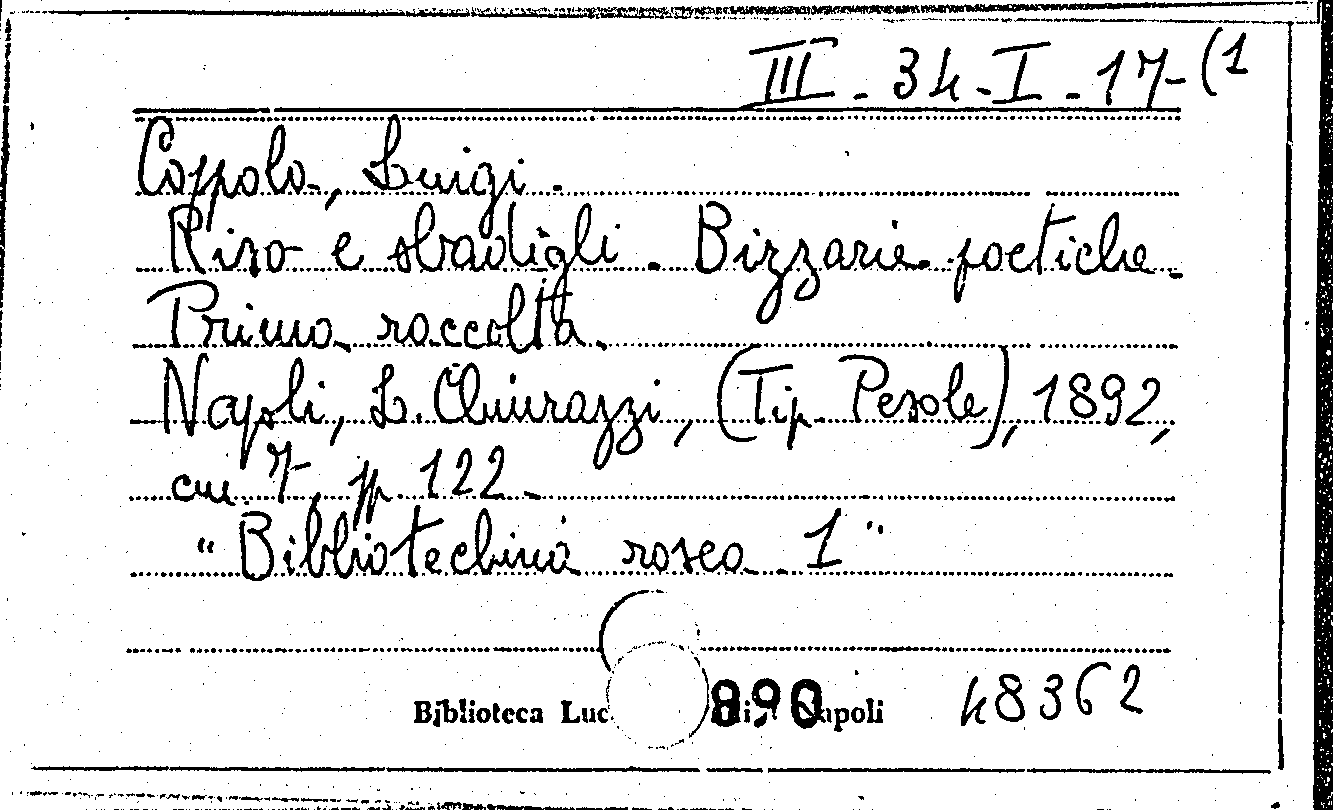 III - 34 - I - 17 - (1
Coppola, Luigi.
Riso e sbadigli. Bizzarie poetiche.
Prima raccolta.
Napoli, L. Chiurazzi, (Tip. Pesole), 1892,
cm. 7, pp. 122.
"Bibliotechina rosea 1"
Biblioteca Luc 890 apoli 48362